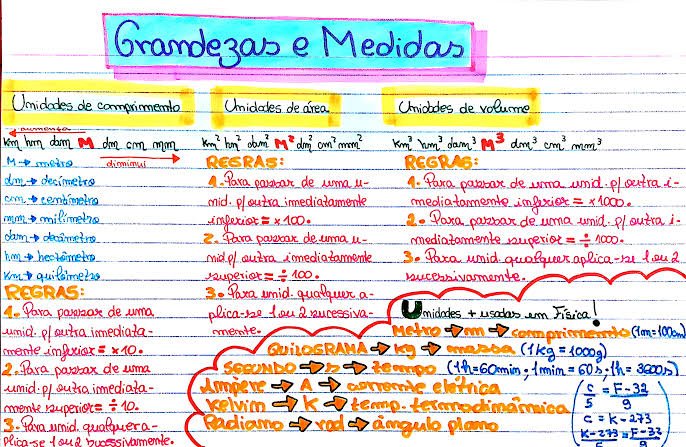 Grandezas e Medidas
Unidades de comprimento
aumenta
km hm dam M dm cm mm
diminui
M → metro
dm → decímetro
cm → centímetro
mm → milímetro
dam → decâmetro
hm → hectômetro
km → quilômetro
REGRAS:
1. Para passar de uma
unid. p/ outra imediata-
mente inferior = x 10.
2. Para passar de uma
unid. p/ outra imediata-
mente superior = ÷ 10.
3. Para unid. qualquer a-
plica-se 1 ou 2 sucessivamente.
Unidades de área
km² hm² dam² M² dm² cm² mm²
REGRAS:
1. Para passar de uma u-
nid. p/ outra imediatamente
inferior = x 100.
2. Para passar de uma u-
nid. p/ outra imediatamente
superior = ÷ 100.
3. Para unid. qualquer a-
plica-se 1 ou 2 sucessiva-
mente.
Unidades de volume
km³ hm³ dam³ M³ dm³ cm³ mm³
REGRAS:
1. Para passar de uma unid. p/ outra i-
mediatamente inferior = x 1000.
2. Para passar de uma unid. p/ outra i-
mediatamente superior = ÷ 1000.
3. Para unid. qualquer aplica-se 1 ou 2
sucessivamente.
Unidades + usadas em Física!
Metro → m → comprimento (1m = 100cm)
QUILOGRAMA → kg → massa (1kg = 1000g)
SEGUNDO → s → tempo (1h = 60min; 1min = 60s; 1h = 3600s)
Ampere → A → corrente elétrica
Kelvim → K → temp. termodinâmica
Radiano → rad → ângulo plano
C/5 = F-32/9
C = K-273
K-273 = F-32
5 9